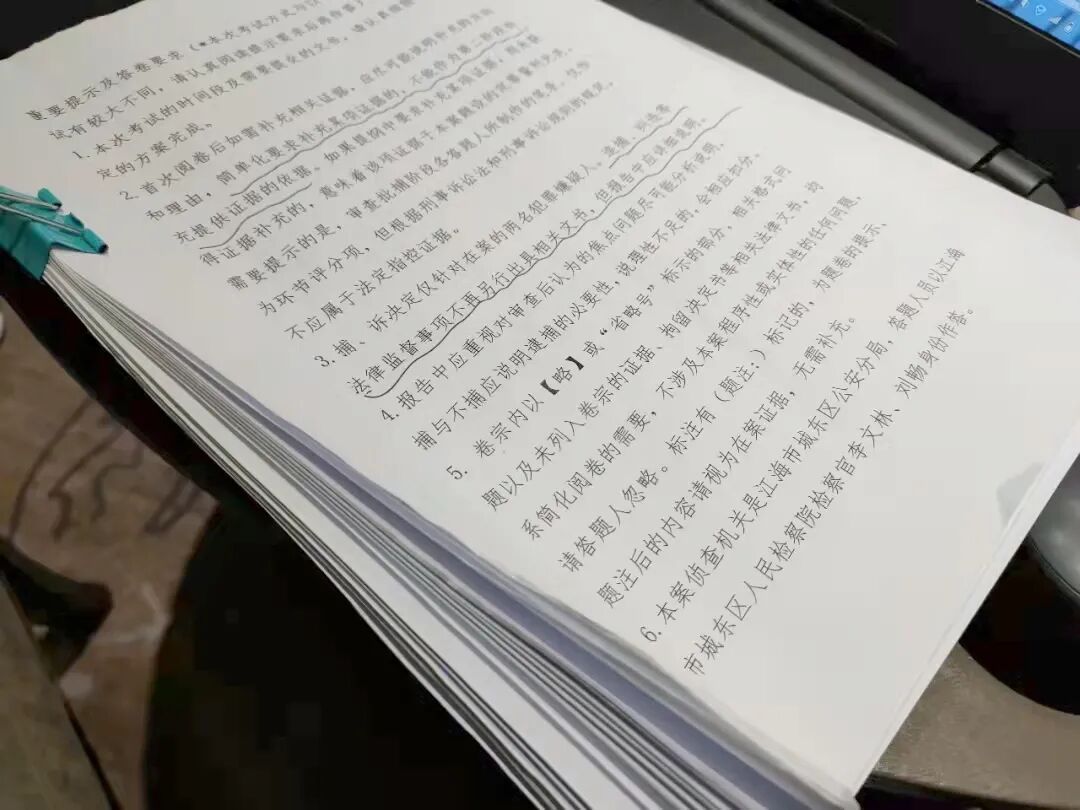 重要提示及答卷要求（*本次考试方式与以
试有较大不同，请认真阅读提示要求后再作答
1. 本次考试的时间段及需要提交的文书，请认真
定的方案完成。
2. 首次阅卷后如需补充相关证据，应尽可能说明
和理由，简单化要求补充某项证据的，不能作为第二阶段
充提供证据的依据。如果提纲中要求补充某项证据，
得证据补充的，意味着该项证据于本案
需要提示的是，审查批捕阶段各答题人所制作的
为环节评分项，但根据刑事诉讼法和刑事诉讼规则的规定，
不应属于法定指控证据。
3. 捕、诉决定仅针对在案的两名犯罪嫌疑人。追捕、
法律监督事项不再另行出具相关文书，但报告中应详细说明。
4. 报告中应重视对审查后认为的焦点问题尽可能分析说明，
捕与不捕应说明逮捕的必要性，说理性不足的，会相应扣分。
5. 卷宗内以【略】或“省略号”标示的部分，相关格式问
题以及未列入卷宗的证据、拘留决定书等相关法律文书，均
系简化阅卷的需要，不涉及本案程序性或实体性的任何问题，
请答题人忽略。标注有（题注：）标记的，为题卷的提示，
题注后的内容请视为在案证据，无需补充。
6. 本案侦查机关是江海市城东区公安分局，答题人员以江海
市城东区人民检察院检察官李文林、刘畅身份作答。